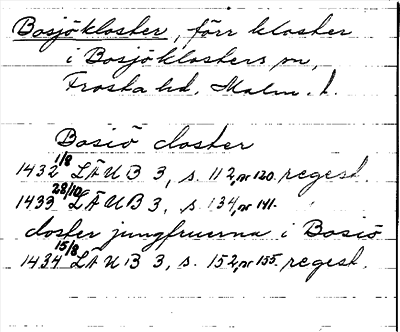 Bosjökloster, förr kloster
i Bosjöklosters sn,
Frosta hd. Malm. l.
Bosiö closter
1432 1/8 LÄUB 3, s. 112, nr 120. regest.
1433 28/10 LÄUB 3, s. 134, nr 141.
closter jungfruerna i Bosiö
1434 15/8 LÄUB 3, s. 152, nr 155. regest.